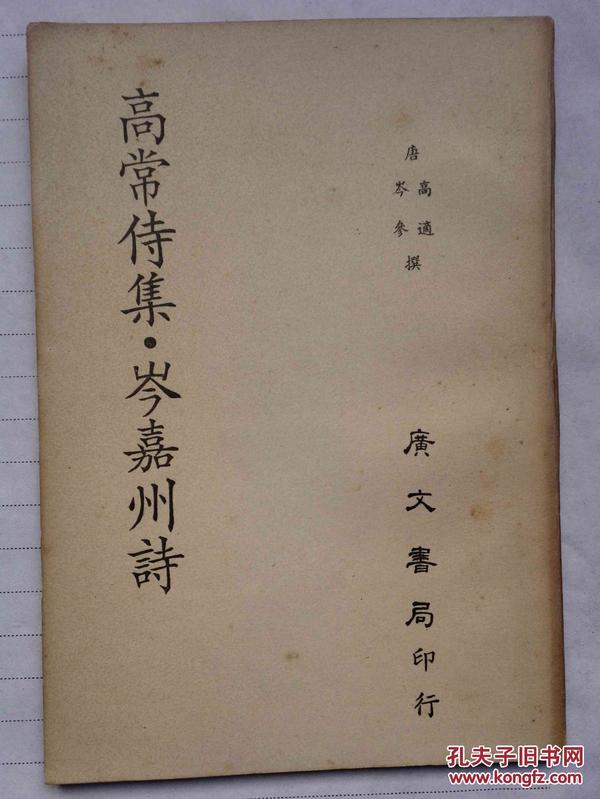 高常侍集·岑嘉州詩
唐 高適
岑參 撰
廣文書局印行
孔夫子旧书网
www.kongfz.com